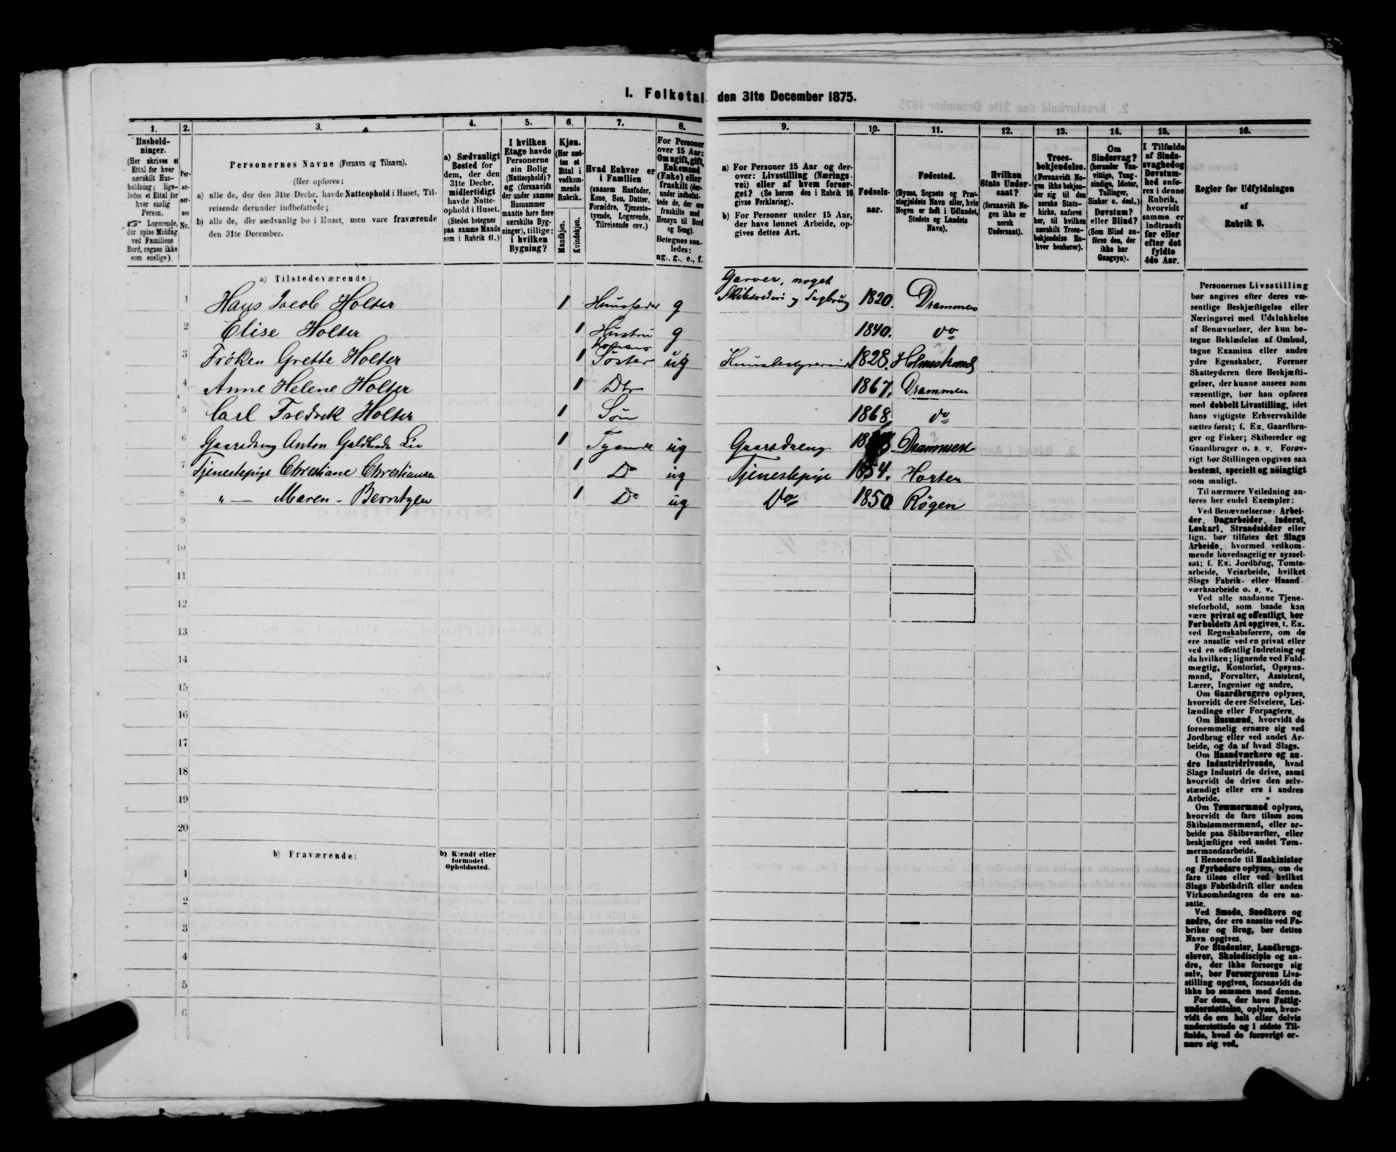 I. Folketal den 31te December 1875.
1. 2. 3. 4. 5. 6. 7. 8. 9. 10. 11. 12. 13. 14. 15. 16.
Husholdninger.
(Her skrives et Ettal for hver særskilt Husholdning; ligeledes et Ettal for hver enslig Person.
Logerende, der spise Middag ved Familiens Bord, regnes ikke som enslige).
Personernes No.
Personernes Navne (Fornavn og Tilnavn).
(Her opføres:
a) alle de, der den 31te Decbr. havde Natteophold i Huset, Tilreisende derunder indbefattede;
b) alle de, der sædvanlig bo i Huset, men vare fraværende den 31te December.
a) Sædvanligt Bosted for dem, der den 31te Decbr. midlertidigt havde Natteophold i Huset.
(Stedet betegnes paa samme Maade som i Rubrik 11.)
I hvilken Etage havde Personerne sin Bolig (Natteophold)? og (forsaavidt der under samme Husnummer maatte høre flere særskilte Bygninger), tillige: i hvilken Bygning?
Kjøn.
(Her anføres et Ettal i vedkommende Rubrik.
Mandkjøn.
Kvindekjøn.
Hvad Enhver er i Familien
(saasom Husfader, Kone, Søn, Datter, Forældre, Tjenestetyende, Logerende, Tilreisende osv.)
For Personer over 15 Aar: Om ugift, gift, Enkemand (Enke) eller fraskilt
Betegnes saaledes: ug., g., e., f.
a) For Personer 15 Aar og derover: Livsstilling (Næringsvei) eller af hvem forsørget? (Se herom den i Rubrik 16 givne Forklaring).
b) For Personer under 15 Aar, der have lønnet Arbeide, opgives dettes Art.
Fødselsaar.
Fødested.
(Byens, Sognets og Præstegjeldets Navn eller, hvis Nogen er født i Udlandet, Stedets og Landets Navn).
Hvilken Stats Undersaat?
(forsaavidt Nogen ikke er norsk Undersaat).
Troesbekjendelse.
(Forsaavidt Nogen ikke bekjender sig til den norske Statskirke, anføres her, til hvilken særskilt Troesbekjendelse Enhver henhører).
Om Sindssvag? (herunder Vanvittige, Tungsindige, Idioter, Tullinger, Sinker o. desl.) Døvstum? eller Blind? (Som Blind anføres den, der ikke har Gangsyn).
I Tilfælde af Sindssvaghed og Døvstumhed anføres i denne Rubrik, hvorvidt samme er indtraadt før eller efter det fyldte 4de Aar.
Regler for Udfyldningen af Rubrik 9.
a) Tilstedeværende:
Garver, noget
1 Hans Jacob Holter 1 Huusfader g Skibsrederi og Sagbrug 1820. Drammen
2 Elise Holter 1 Hustru g 1840. do
3 Frøken Grette Holter 1 Søster ug Huusbestyrerinde 1828. Holmestrand
4 Anne Helene Holter 1 Dtr 1867. Drammen
5 Carl Fredrik Holter 1 Søn 1868 do
6 Gaardsdreng Anton 1 Tyende ug Gaardsdreng Drammen
7 Tjenestepige Christiane Christiansen 1 Do ug Tjenestepige 1854. Horten
8 " — Maren Berntzen 1 Do ug Do 1850 Røgen
9
10
11
12
13
14
15
16
17
18
19
20
b) Fraværende:
b) Kjendt eller formodet Opholdssted.
1
2
3
4
5
6
Personernes Livsstilling
bør angives efter deres væ-
sentlige Beskjæftigelse eller
Næringsvei med Udelukkelse
af Benævnelser, der kun be-
tegne Beklædelse af Ombud,
tagne Examina eller andre
ydre Egenskaber. Forener
Skatteyderen flere Beskjæfti-
gelser, der kunne ansees som
væsentlige, bør han opføres
med dobbelt Livsstilling, idet
hans vigtigste Erhvervskilde
sættes først; f. Ex. Gaardbru-
ger og Fisker; Skibsreder og
Gaardbruger o. s. v. Forøv-
rigt bør Stillingen opgives saa
bestemt, specielt og nøiagtigt
som muligt.
Til nærmere Veiledning an-
føres her endel Exempler:
Ved Benævnelserne: Arbei-
der, Dagarbeider, Inderst,
Løskarl, Strandsidder eller
lign. bør tilføies det Slags
Arbeide, hvormed vedkom-
mende hovedsagelig er syssel-
sat; f. Ex. Jordbrug, Tomte-
arbeide, Veiarbeide, hvilket
Slags Fabrik- eller Haand-
værksarbeide o. s. v.
Ved alle saadanne Tjene-
steforhold, som baade kan
være privat og offentligt, bør
Forholdets Art opgives, f. Ex.
ved Regnskabsførere, om de
ere ansatte ved en privat eller
ved en offentlig Indretning og
da hvilken; lignende ved Fuld-
mægtig, Kontorist, Opsyns-
mand, Forvalter, Assistent,
Lærer, Ingeniør og andre.
Om Gaardbrugere oplyses,
hvorvidt de ere Selveiere, Lei-
lændinge eller Forpagtere.
Om Husmænd, hvorvidt de
fornemmelig ernære sig ved
Jordbrug eller ved andet Ar-
beide, og da af hvad Slags.
Om Haandværkere og an-
dre Industridrivende, hvad
Slags Industri de drive, samt
hvorvidt de drive den selv-
stændigt eller ere i andres
Arbeide.
Om Tømmermænd oplyses,
hvorvidt de fare tilsøs som
Skibstømmermænd, eller ar-
beide paa Skibsværfter, eller
beskjæftiges ved andet Tøm-
mermandsarbeide.
I Henseende til Maskinister
og Fyrbødere oplyses, om de
fare tilsøs eller ved hvilket
Slags Fabrikdrift eller anden
Virksomhedsgren de ere an-
satte.
Ved Smede, Snedkere og
andre, der ere ansatte ved Fa-
briker og Brug, bør dettes
Navn opgives.
For Studenter, Landbrugs-
elever, Skoledisciple og an-
dre, der ikke forsørge sig
selv, bør Forsørgerens Livs-
stilling opgives, forsaavidt de
ikke bo sammen med denne.
For dem, der have Fattig-
understøttelse, oplyses, hvor-
vidt de ere helt eller delvis
understøttede og i sidste Til-
fælde, hvad de forøvrigt er-
nære sig ved.